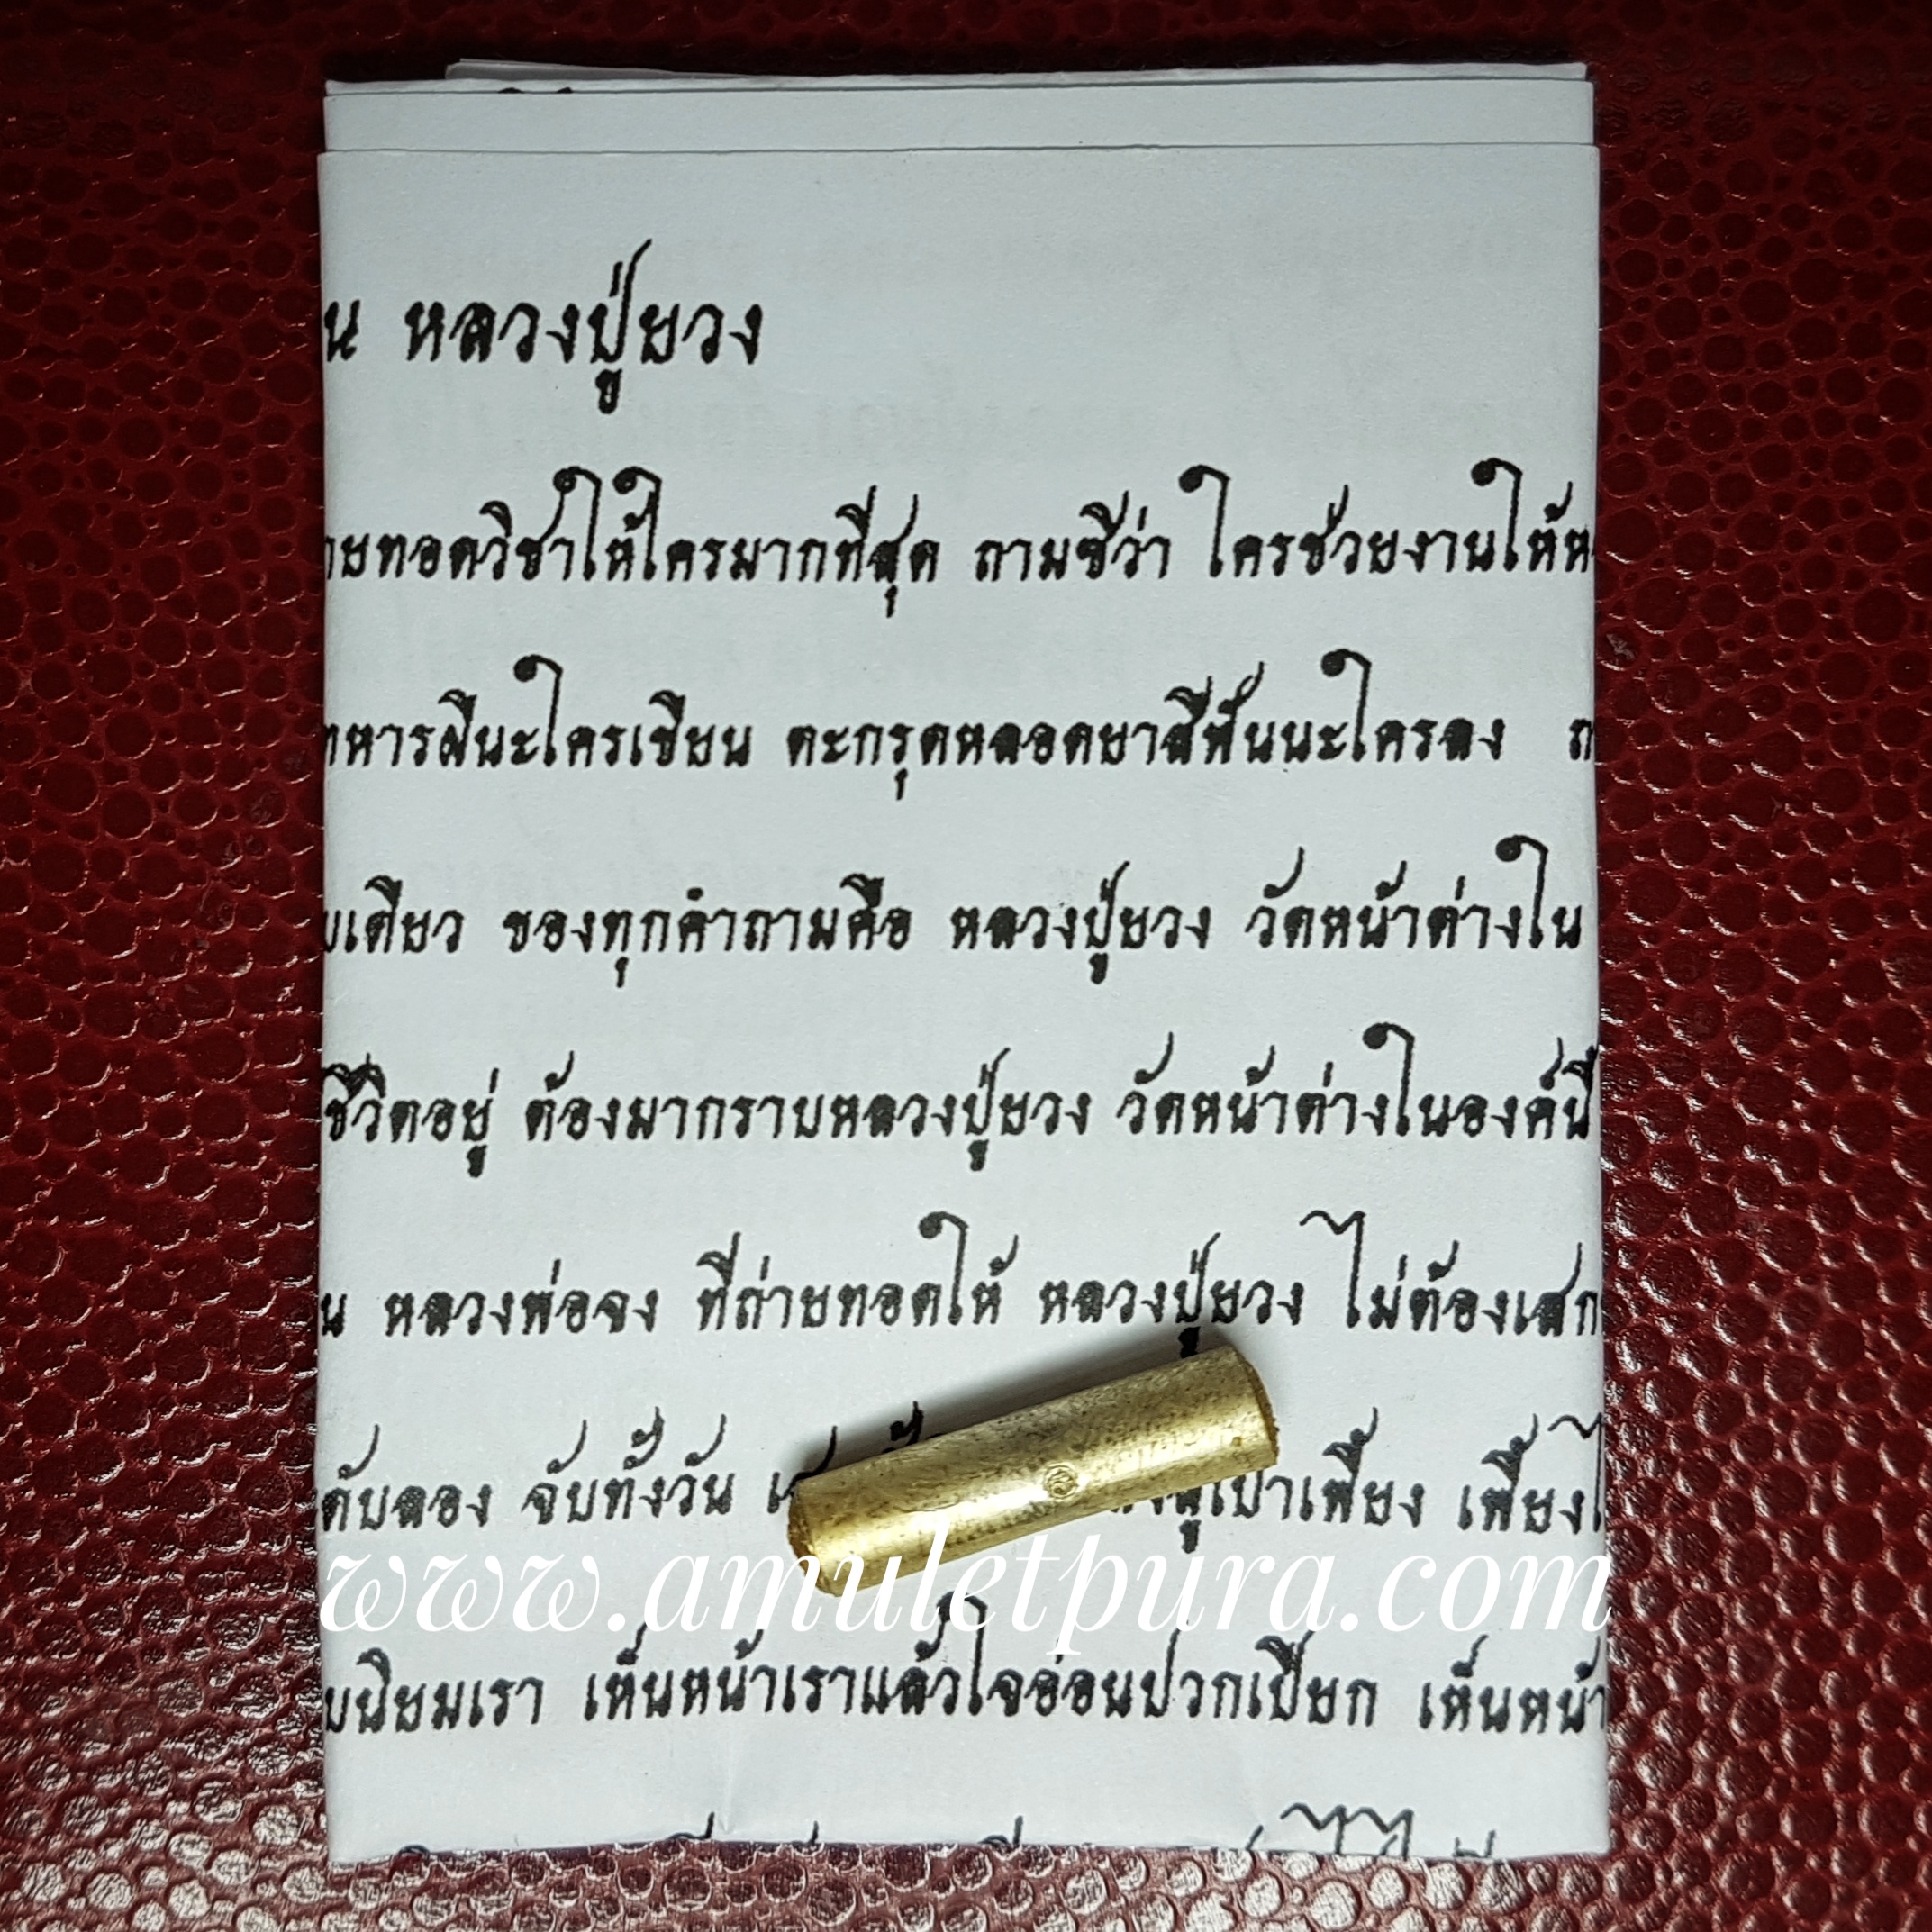 น หลวงปู่ยวง
ายทอดวิชาให้ใครมากที่สุด ถามซิว่า ใครช่วยงานให้ห
ทหารผีนะใครเขียน ตะกรุดหลอดยาสีฟันนะใครลง ถ
บเดียว ของทุกคำถามคือ หลวงปู่ยวง วัดหน้าต่างใน
ชีวิตอยู่ ต้องมากราบหลวงปู่ยวง วัดหน้าต่างในองค์นี้
น หลวงพ่อจง ที่ถ่ายทอดให้ หลวงปู่ยวง ไม่ต้องเสก
ดับลอง จับทั้งวัน เพี้ยง เพี้ยง
www.amuletpura.com
บนิยมเรา เห็นหน้าเราแล้วใจอ่อนปวกเปียก เห็นหน้า